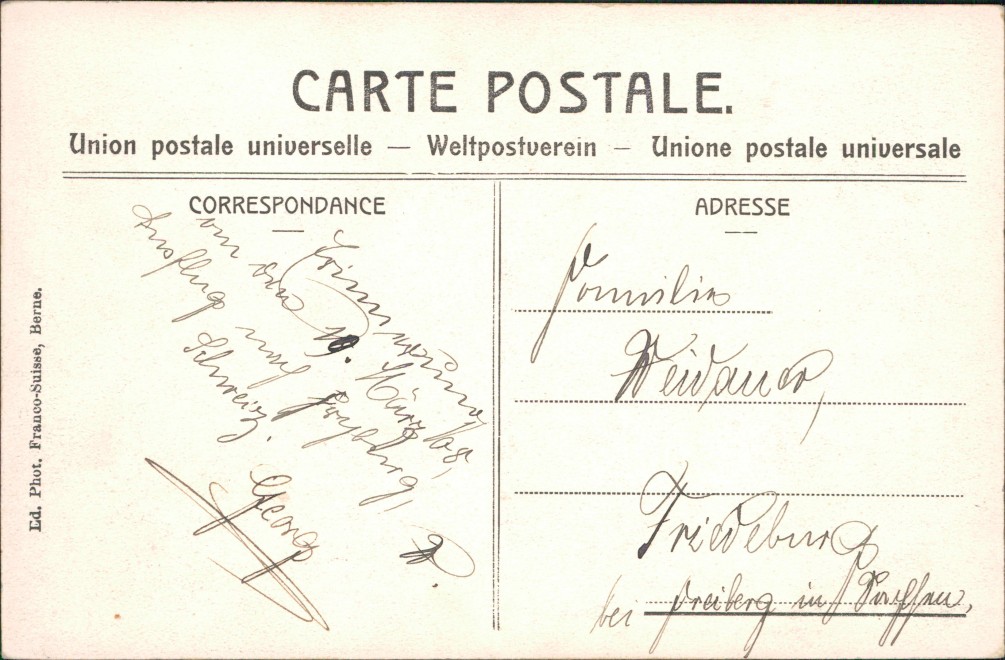 CARTE POSTALE.
Union postale universelle — Weltpostverein — Unione postale universale
CORRESPONDANCE
Erinnerung
an den 19. März 08,
Ausflug nach Freyburg,
Schweiz.
Georg
ADRESSE
Familie
Weidauer,
Friedeburg
bei Freiberg in Sachsen,
Ed. Phot. Franco-Suisse, Berne.